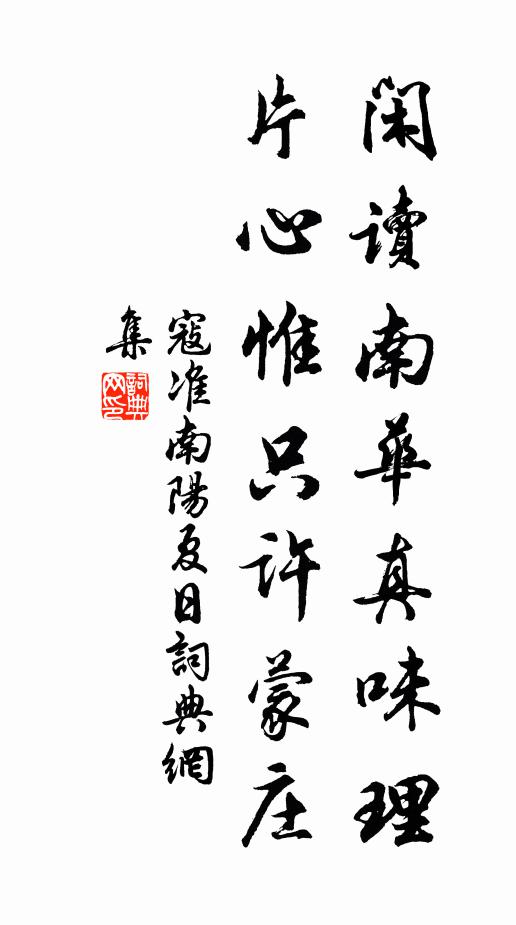 閑讀南華真味理
片心惟只許蒙庄
寇准南陽夏日詞典網
集
詞典
网印